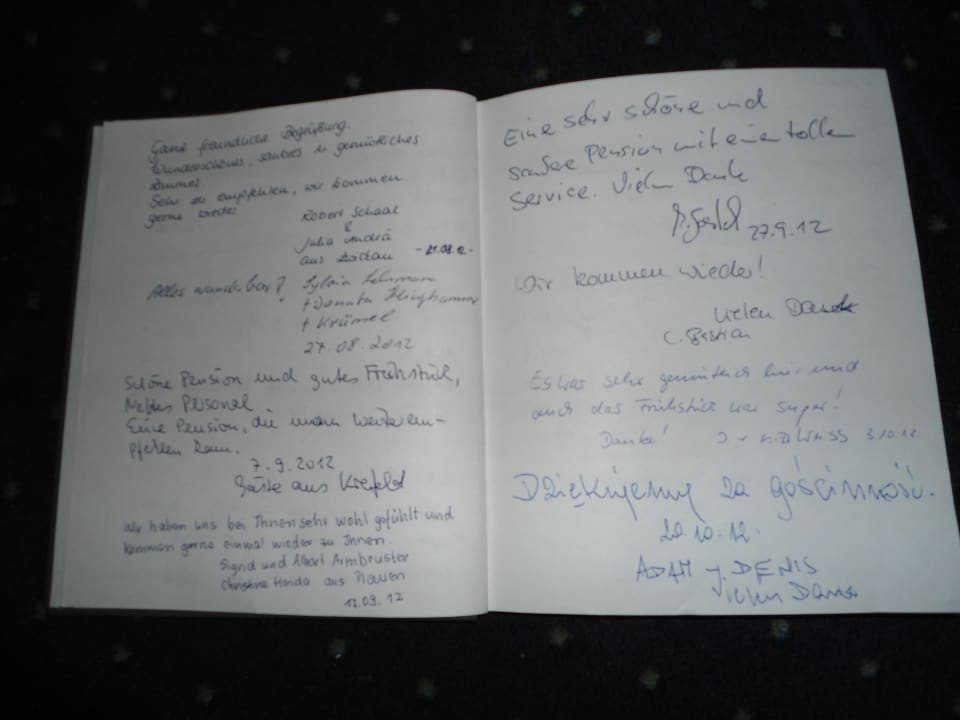 Ganz freundliche Begrüßung.
Wunderschönes, saubres u. gemütliches
Zimmer.
Sehr zu empfehlen, wir kommen
gerne wieder.
Robert Schaal
&
Julia Andrä
aus Zwickau -21.08.12-
Alles wunderbar! Sylvia Lehmann
+ Donata
+ Krümel
27.08.2012
Schöne Pension und gutes Frühstück,
Nettes Personal
Eine Pension, die man weiterem-
pfehlen kann.
7.9.2012
Gäste aus Krefeld
Wir haben uns bei Ihnen sehr wohl gefühlt und
kommen gerne einmal wieder zu Ihnen.
Sigrid und Albert Armbruster
Christine Haida aus Plauen
12.09.12
Eine sehr schöne und
saubere Pension mit eine tollen
Service. Vielen Dank
27.9.12
Wir kommen wieder!
Vielen Dank
C. Bastian
Es war sehr gemütlich hier und
auch das Frühstück war super!
Danke! 3.10.12
Dziękujemy za gościnność.
20.10.12.
ADAM y. DENIS
Vielen Dank